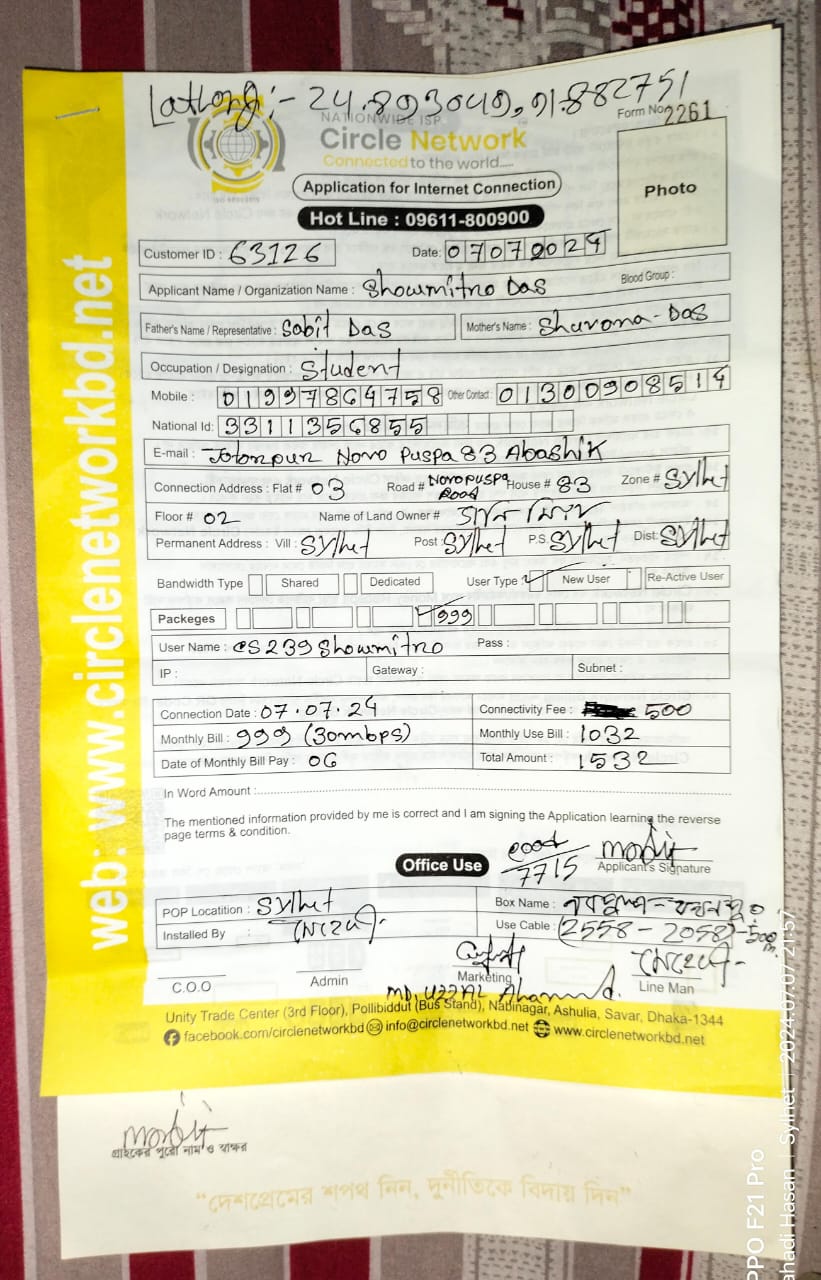 Latlong:- 24.893049, 91.882751
NATIONWIDE ISP
Circle Network
Connected to the world....
Form No. 2261
Application for Internet Connection
Photo
Hot Line : 09611-800900
Customer ID : 63126 Date: 07072024
Applicant Name / Organization Name : Showmitro Das Blood Group :
Father's Name / Representative : Sabit Das Mother's Name : Shurona Das
Occupation / Designation : Student
Mobile : 01997864758 Other Contact : 01300908514
National Id: 3311356855
E-mail : Novo Puspa 83 Abashik
Connection Address : Flat # 03 Road # Novo puspa Road House # 83 Zone # Sylhet
Floor # 02 Name of Land Owner #
Permanent Address : Vill : Sylhet Post : Sylhet P.S. Sylhet Dist: Sylhet
Bandwidth Type Shared Dedicated User Type : New User Re-Active User
Packeges 999
User Name : CS239 Showmitro Pass :
IP : Gateway : Subnet :
Connection Date : 07.07.24 Connectivity Fee : 500
Monthly Bill : 999 (30mbps) Monthly Use Bill : 1032
Date of Monthly Bill Pay : 06 Total Amount : 1532
In Word Amount :
The mentioned information provided by me is correct and I am signing the Application learning the reverse
page terms & condition.
Office Use
7715
Applicant's Signature
POP Locatition : Sylhet Box Name :
Installed By : Use Cable : (2558 - 2058) - 500 m.
C.O.O Admin Marketing Line Man
MD, UZZAL Ahammed.
Unity Trade Center (3rd Floor), Pollibiddut (Bus Stand), Nabinagar, Ashulia, Savar, Dhaka-1344
facebook.com/circlenetworkbd info@circlenetworkbd.net www.circlenetworkbd.net
web: www.circlenetworkbd.net
গ্রাহকের পুরো নাম ও স্বাক্ষর
“দেশপ্রেমের শপথ নিন, দুর্নীতিকে বিদায় দিন”
PPO F21 Pro
ahadi Hasan | Sylhet | 2024.07.07 21:57